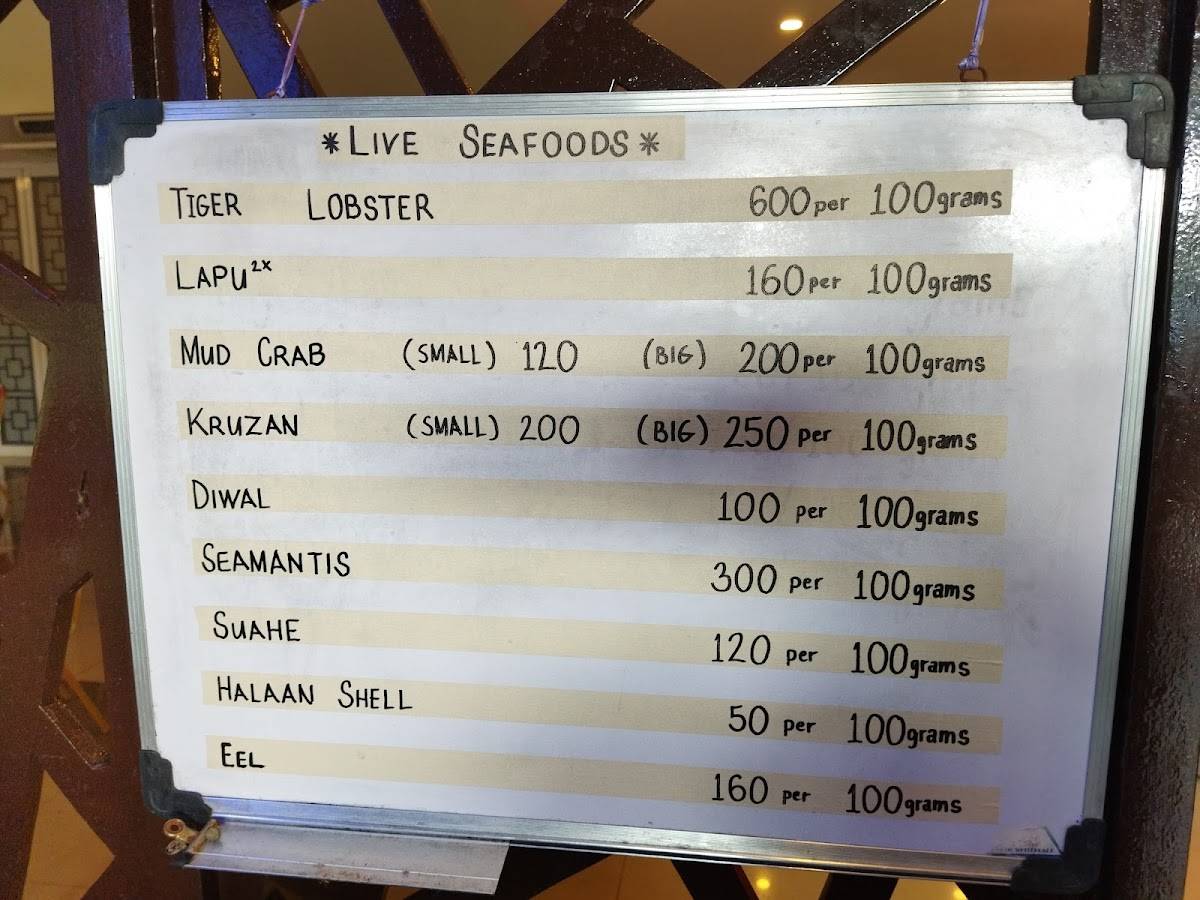 *LIVE SEAFOODS*
TIGER LOBSTER 600 per 100grams
LAPU²ˣ 160 per 100grams
MUD CRAB (SMALL) 120 (BIG) 200 per 100grams
KRUZAN (SMALL) 200 (BIG) 250 per 100grams
DIWAL 100 per 100grams
SEAMANTIS 300 per 100grams
SUAHE 120 per 100grams
HALAAN SHELL 50 per 100grams
EEL 160 per 100grams